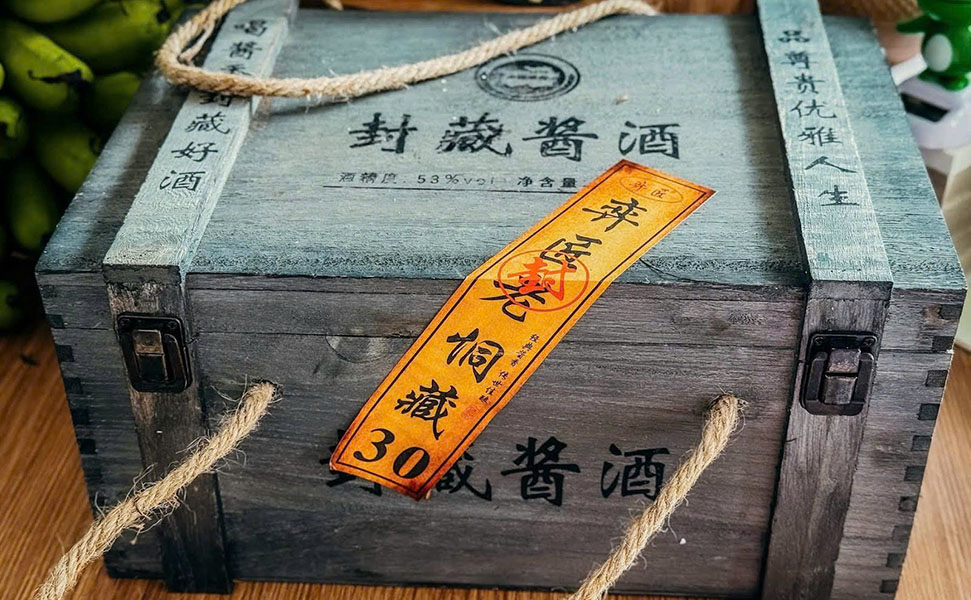 喝酱
封藏好酒
品尊贵优雅人生
封藏酱酒
酒精度:53%vol 净含量
弈匠
弈匠老恫藏
封
30
经典酱香 传世佳酿
藏酱酒